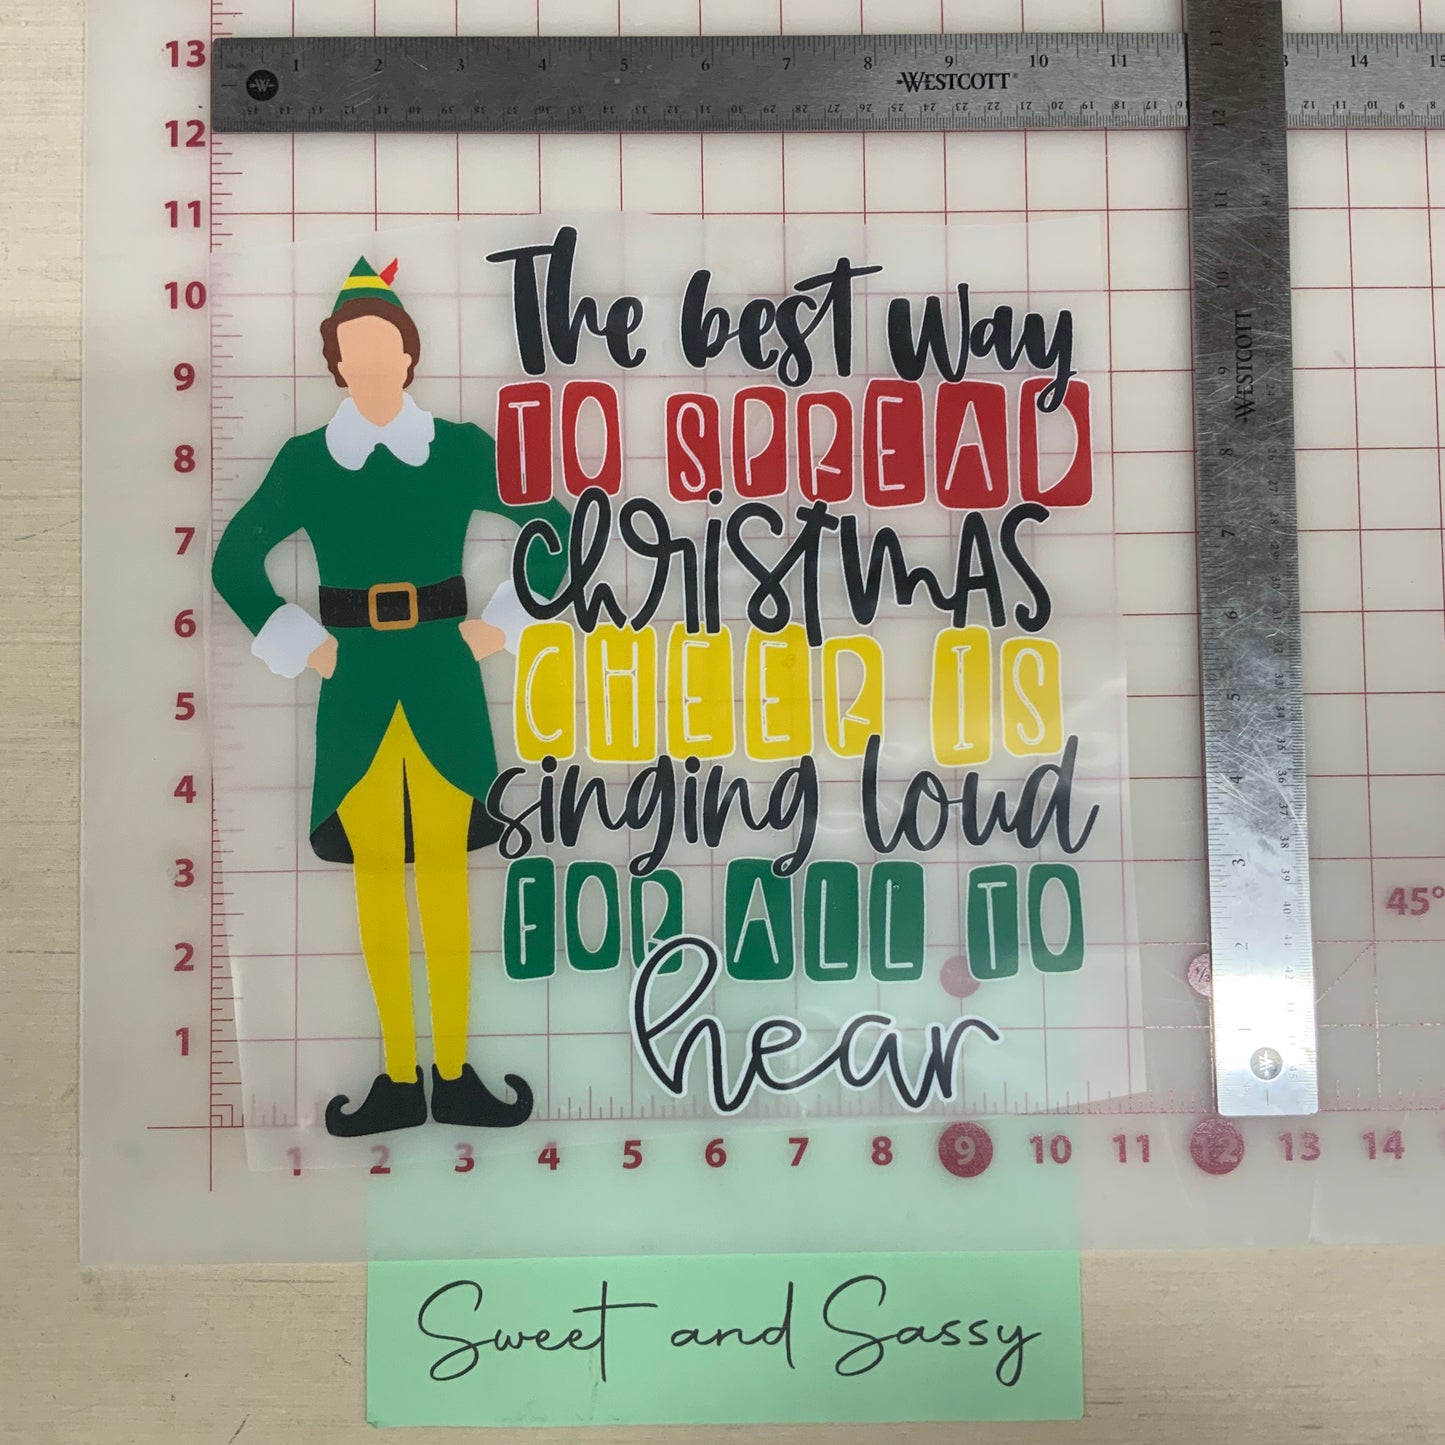 WESTCOTT
WESTCOTT
The best way
TO SPREAD
christmas
CHEER IS
singing loud
FOR ALL TO
hear
13
12
11
10
9
8
7
6
5
4
3
2
1
1 2 3 4 5 6 7 8 9 10 11 12 13 14
45°
Sweet and Sassy